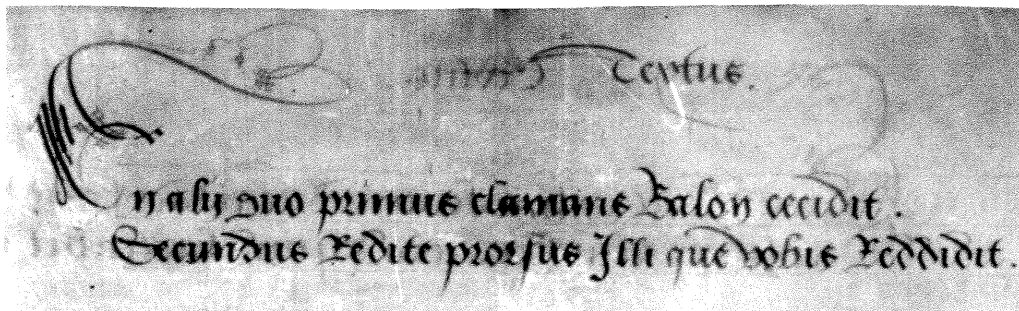 Textus.
En alij duo primus clamans Balon cecidit.
Secundus Redite prorsus Illi que vobis Reddidit.